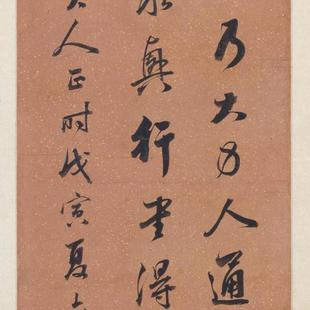 乃大力人通
真行書得
人正時戊寅夏